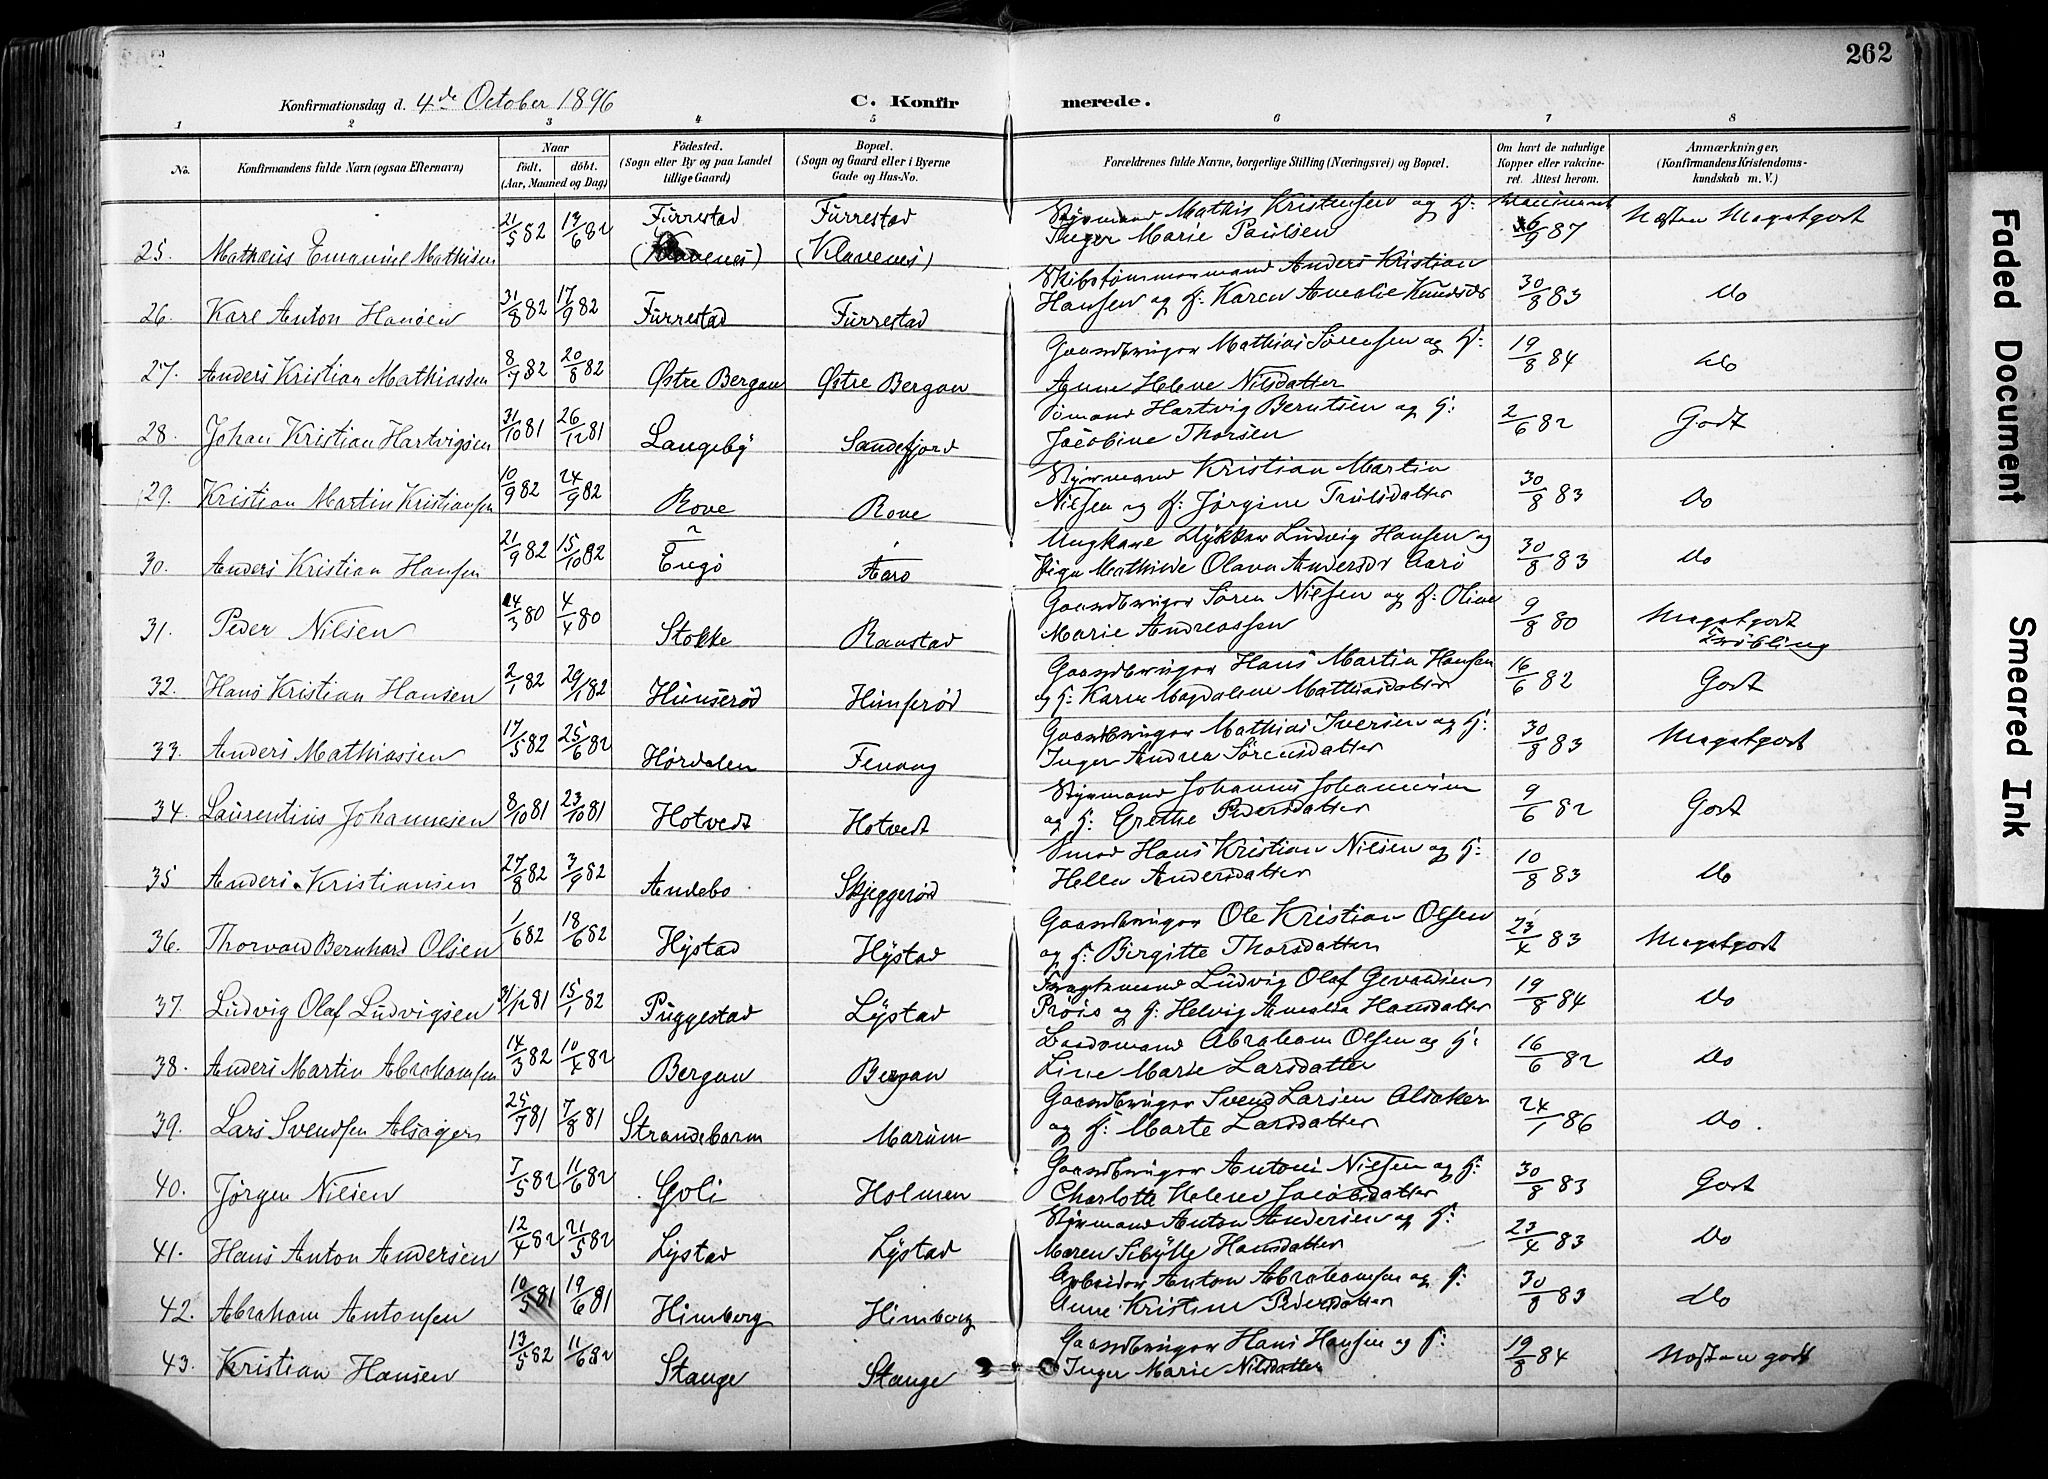 262
Konfirmationsdag d. 4de October 1896
C. Konfirmerede.
1 2 3 4 5 6 7 8
No. Konfirmandens fulde Navn (ogsaa Efternavn) Naar født, døbt. (Aar, Maaned og Dag) Fødested. (Sogn eller By og paa Landet tillige Gaard) Bopæl. (Sogn og Gaard eller i Byerne Gade og Hus-No. Forældrenes fulde Navne, borgerlige Stilling (Næringsvei) og Bopæl. Om havt de naturlige Kopper eller vakcineret. Attest herom. Anmærkninger, (Konfirmandens Kristendomskundskab m. V.)
25. Mathæus Emanuel Mathisen 21/5 82 Furrestad (Klavenes) Furrestad (Klavenes) Styrmand Mathis Kristensen og H: Inger Marie Paulsen 87 Næsten Megetgodt
26. Karl Anton Hansen 31/8 82 17/9 82 Furrestad Furrestad Skibstømmermand Anders Kristian Hansen og H: Karen Amalie Knudsdr 30/8 83 Do
27. Anders Kristian Mathiassen 8/7 82 20/8 82 Østre Bergan Østre Bergan Gaardbruger Mathias Sørensen og H: Anne Helene Nilsdatter 19/8 84 Do
28. Johan Kristian Hartvigsen 31/10 81 26/12 81 Langeby Sandefjord Sømand Hartvig Berntsen og H: Jacobine Thorsen 2/6 82 Godt
29. Kristian Martin Kristiansen 10/9 82 24/9 82 Rove Rove Styrmand Kristian Martin Nilsen og H: Jørgine Trulsdatter 30/8 83 Do
30. Anders Kristian Hansen 21/9 82 15/10 82 Engø Aarø Ungkarl Dykker Ludvig Hansen og Pige Mathilde Olava Andersdr Aarø 30/8 83 Do
31. Peder Nilsen 80 4/4 80 Stokke Ranstad Gaardbruger Søren Nilsen og H: Oline Marie Andreassen 9/8 80 Megetgodt
32. Hans Kristian Hansen 2/1 82 29/1 82 Hunserød Hunserød Gaardbruger Hans Martin Hansen og H: Karen Magdalene Mathiasdatter 16/6 82 Godt
33. Anders Mathiassen 17/5 82 25/6 82 Hørdalen Fevang Gaardbruger Mathias Iversen og H: Inger Andrea Sørensdatter 30/8 83 Megetgodt
34. Laurentius Johannesen 8/10 81 23/10 81 Hotvedt Hotvedt Styrmand Johannes Johannesen og H: Grethe Pedersdatter 9/6 82 Godt
35 Anders Kristiansen 27/8 82 3/9 82 Andebo Skjeggerød Smed Hans Kristian Nilsen og H: Helle Andersdatter 10/8 83 Do
36. Thorvald Bernhard Olsen 1/6 82 18/6 82 Hystad Hystad Gaardbruger Ole Kristian Olsen og H: Birgitte Thorsdatter 23/4 83 Megetgodt
37. Ludvig Olaf Ludvigsen 31/12 81 15/1 82 Puggestad Lystad Ludvig Olaf H: Helvig Amalia Hansdatter 19/8 84 Do
38. Anders Martin Abrahamsen 14/3 82 10/4 82 Bergan Bergan Baadsmand Abraham Olsen og H: Line Marie Larsdatter 16/6 82 Do
39. Lars Svendsen Alsager 25/7 81 7/8 81 Strandebarm Marum Gaardbruger Svend Larsen Alsaker og H: Marte Larsdatter 24/1 86 Do.
40. Jørgen Nilsen 7/5 82 11/6 82 Goli Holmen Gaardbruger Antoni Nilsen og H: Charlotte Helene Jacobsdatter 30/8 83 Godt
41. Hans Anton Andersen 12/4 82 21/5 82 Lystad Lystad Styrmand Anton Andersen og H: Maren Sibylle Hansdatter 23/4 83 Do
42. Abraham Antonsen 10/5 81 19/6 81 Himberg Himberg Arbeider Anton Abrahamsen og H: Anne Kristine Pedersdatter 30/8 83 Do
43. Kristian Hansen 13/5 82 11/6 82 Stange Stange Gaardbruger Hans Hansen og H: Inger Marie Nilsdatter 19/8 84 Næsten godt
Faded Document
Smeared Ink